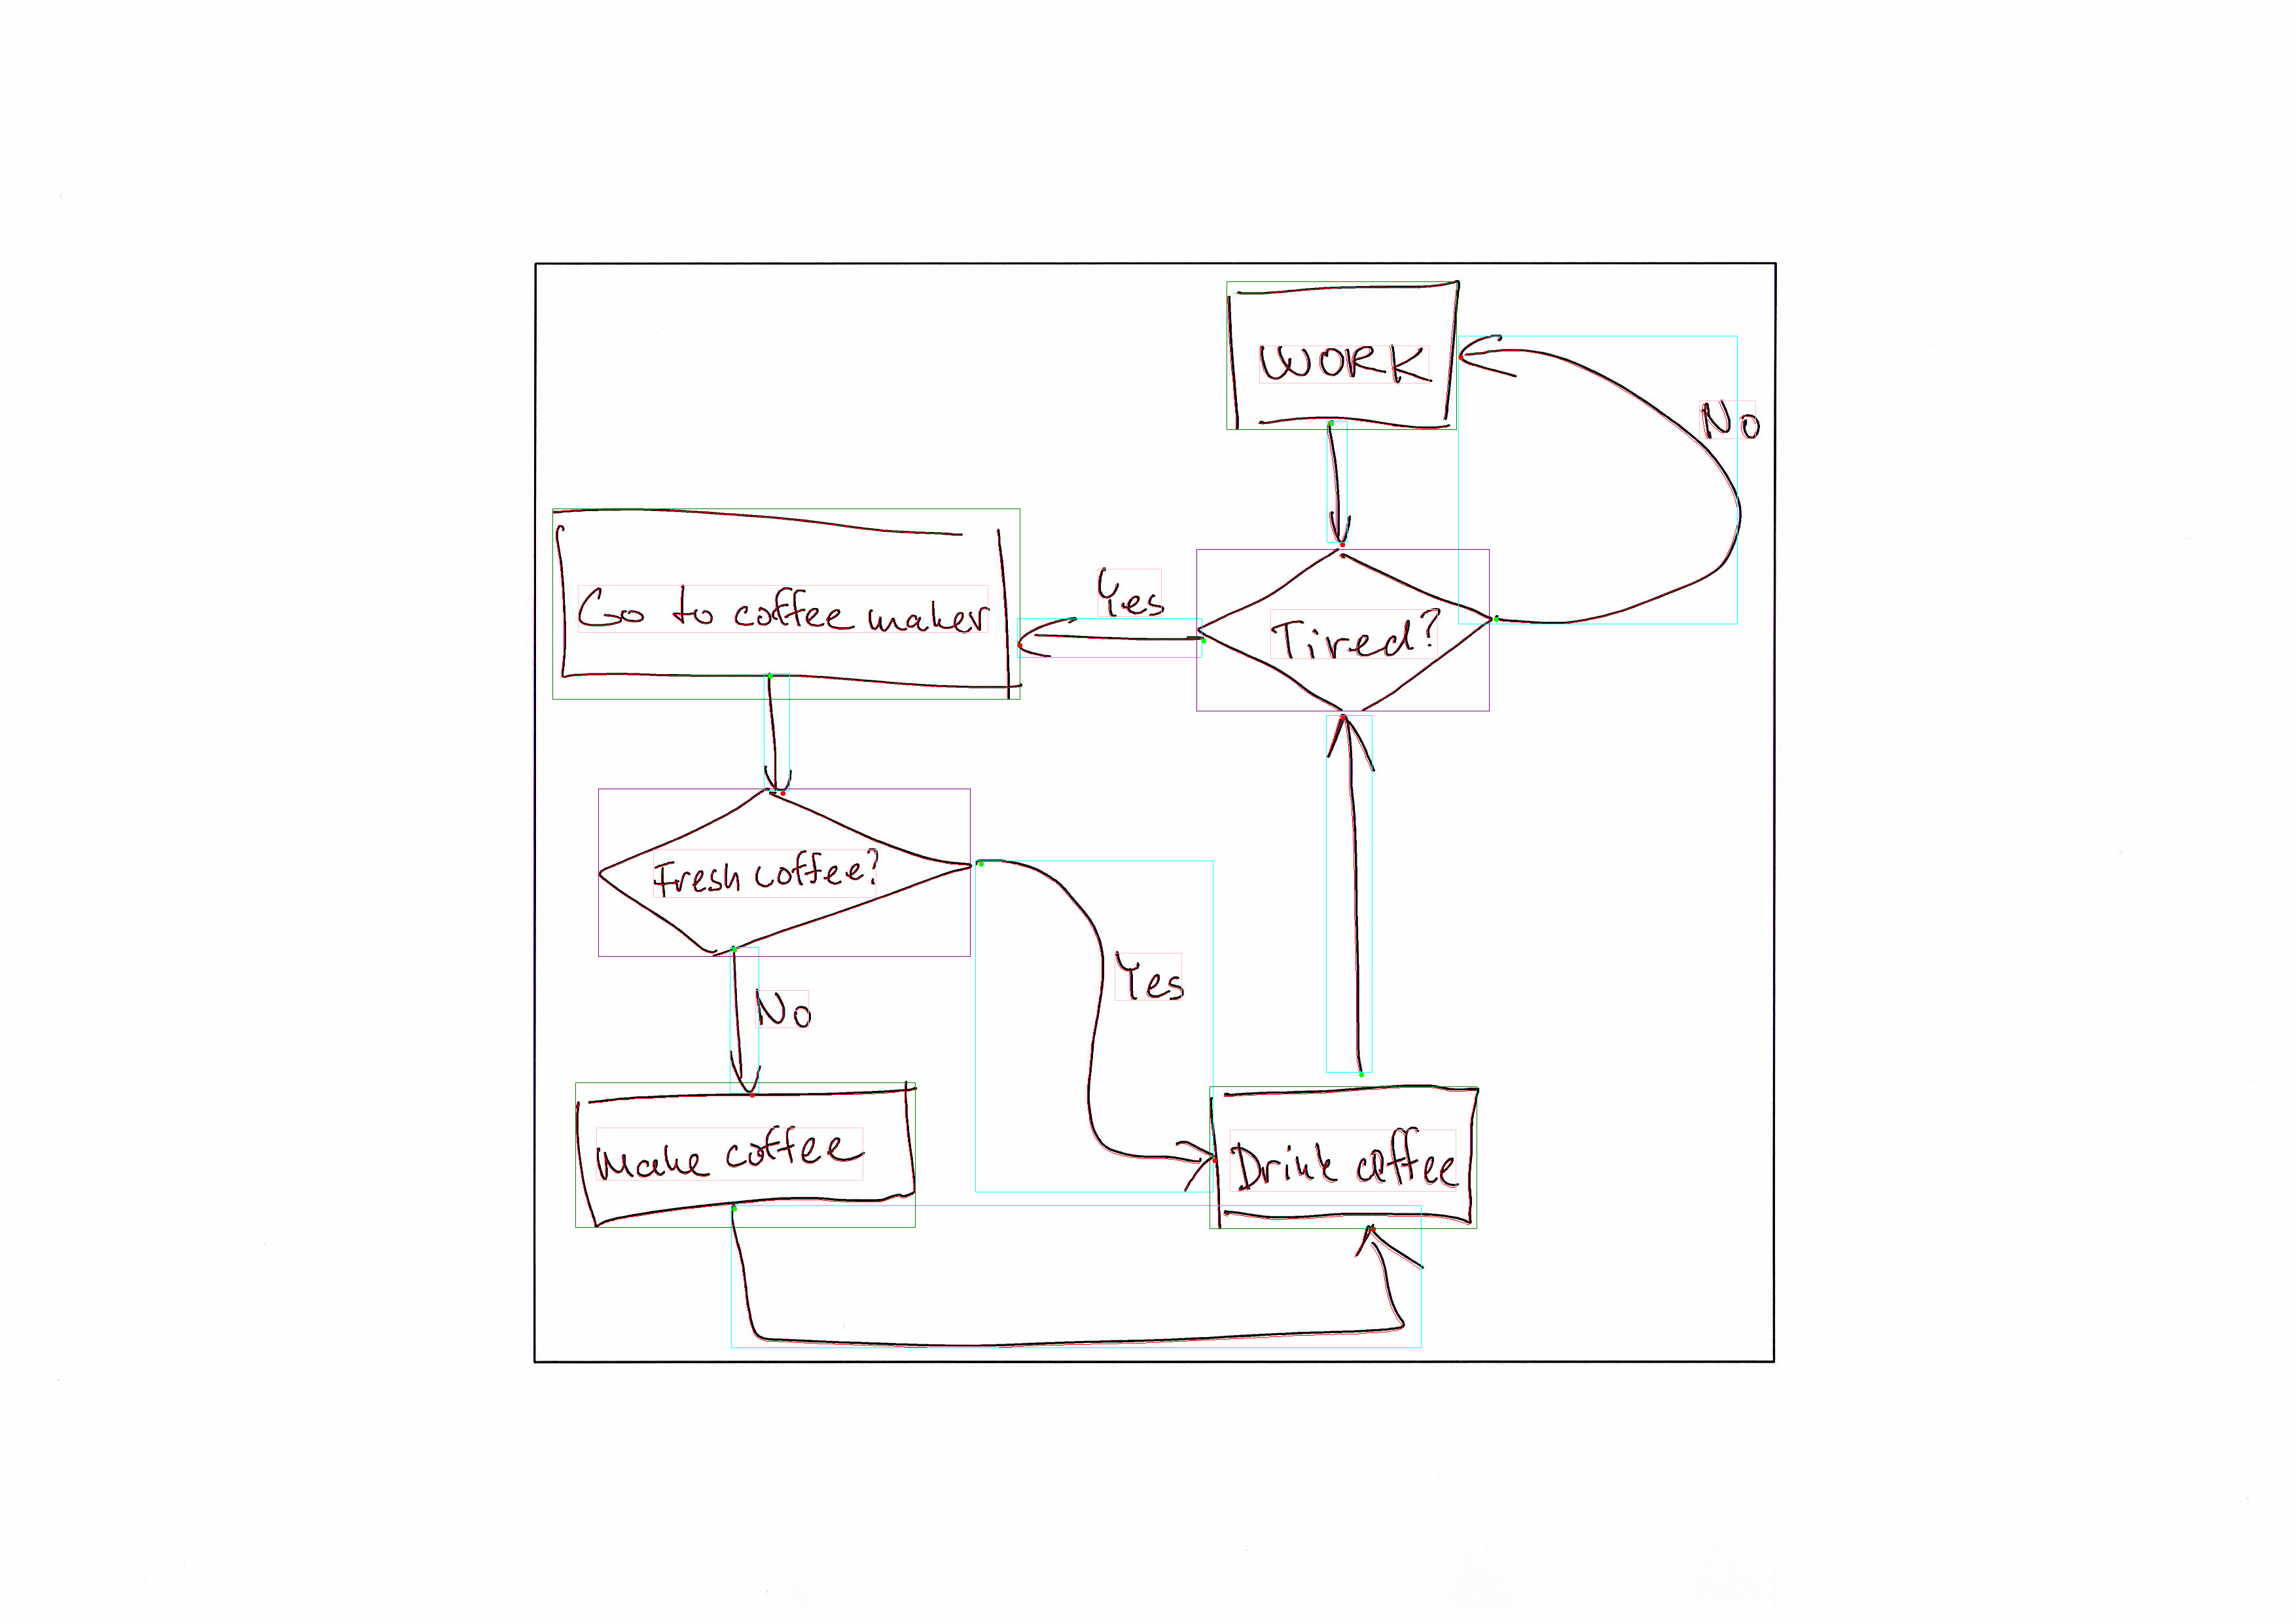 WORK
No
Yes
Go to coffee maker
Tired?
Fresh coffee?
Yes
No
Make coffee
Drink coffee